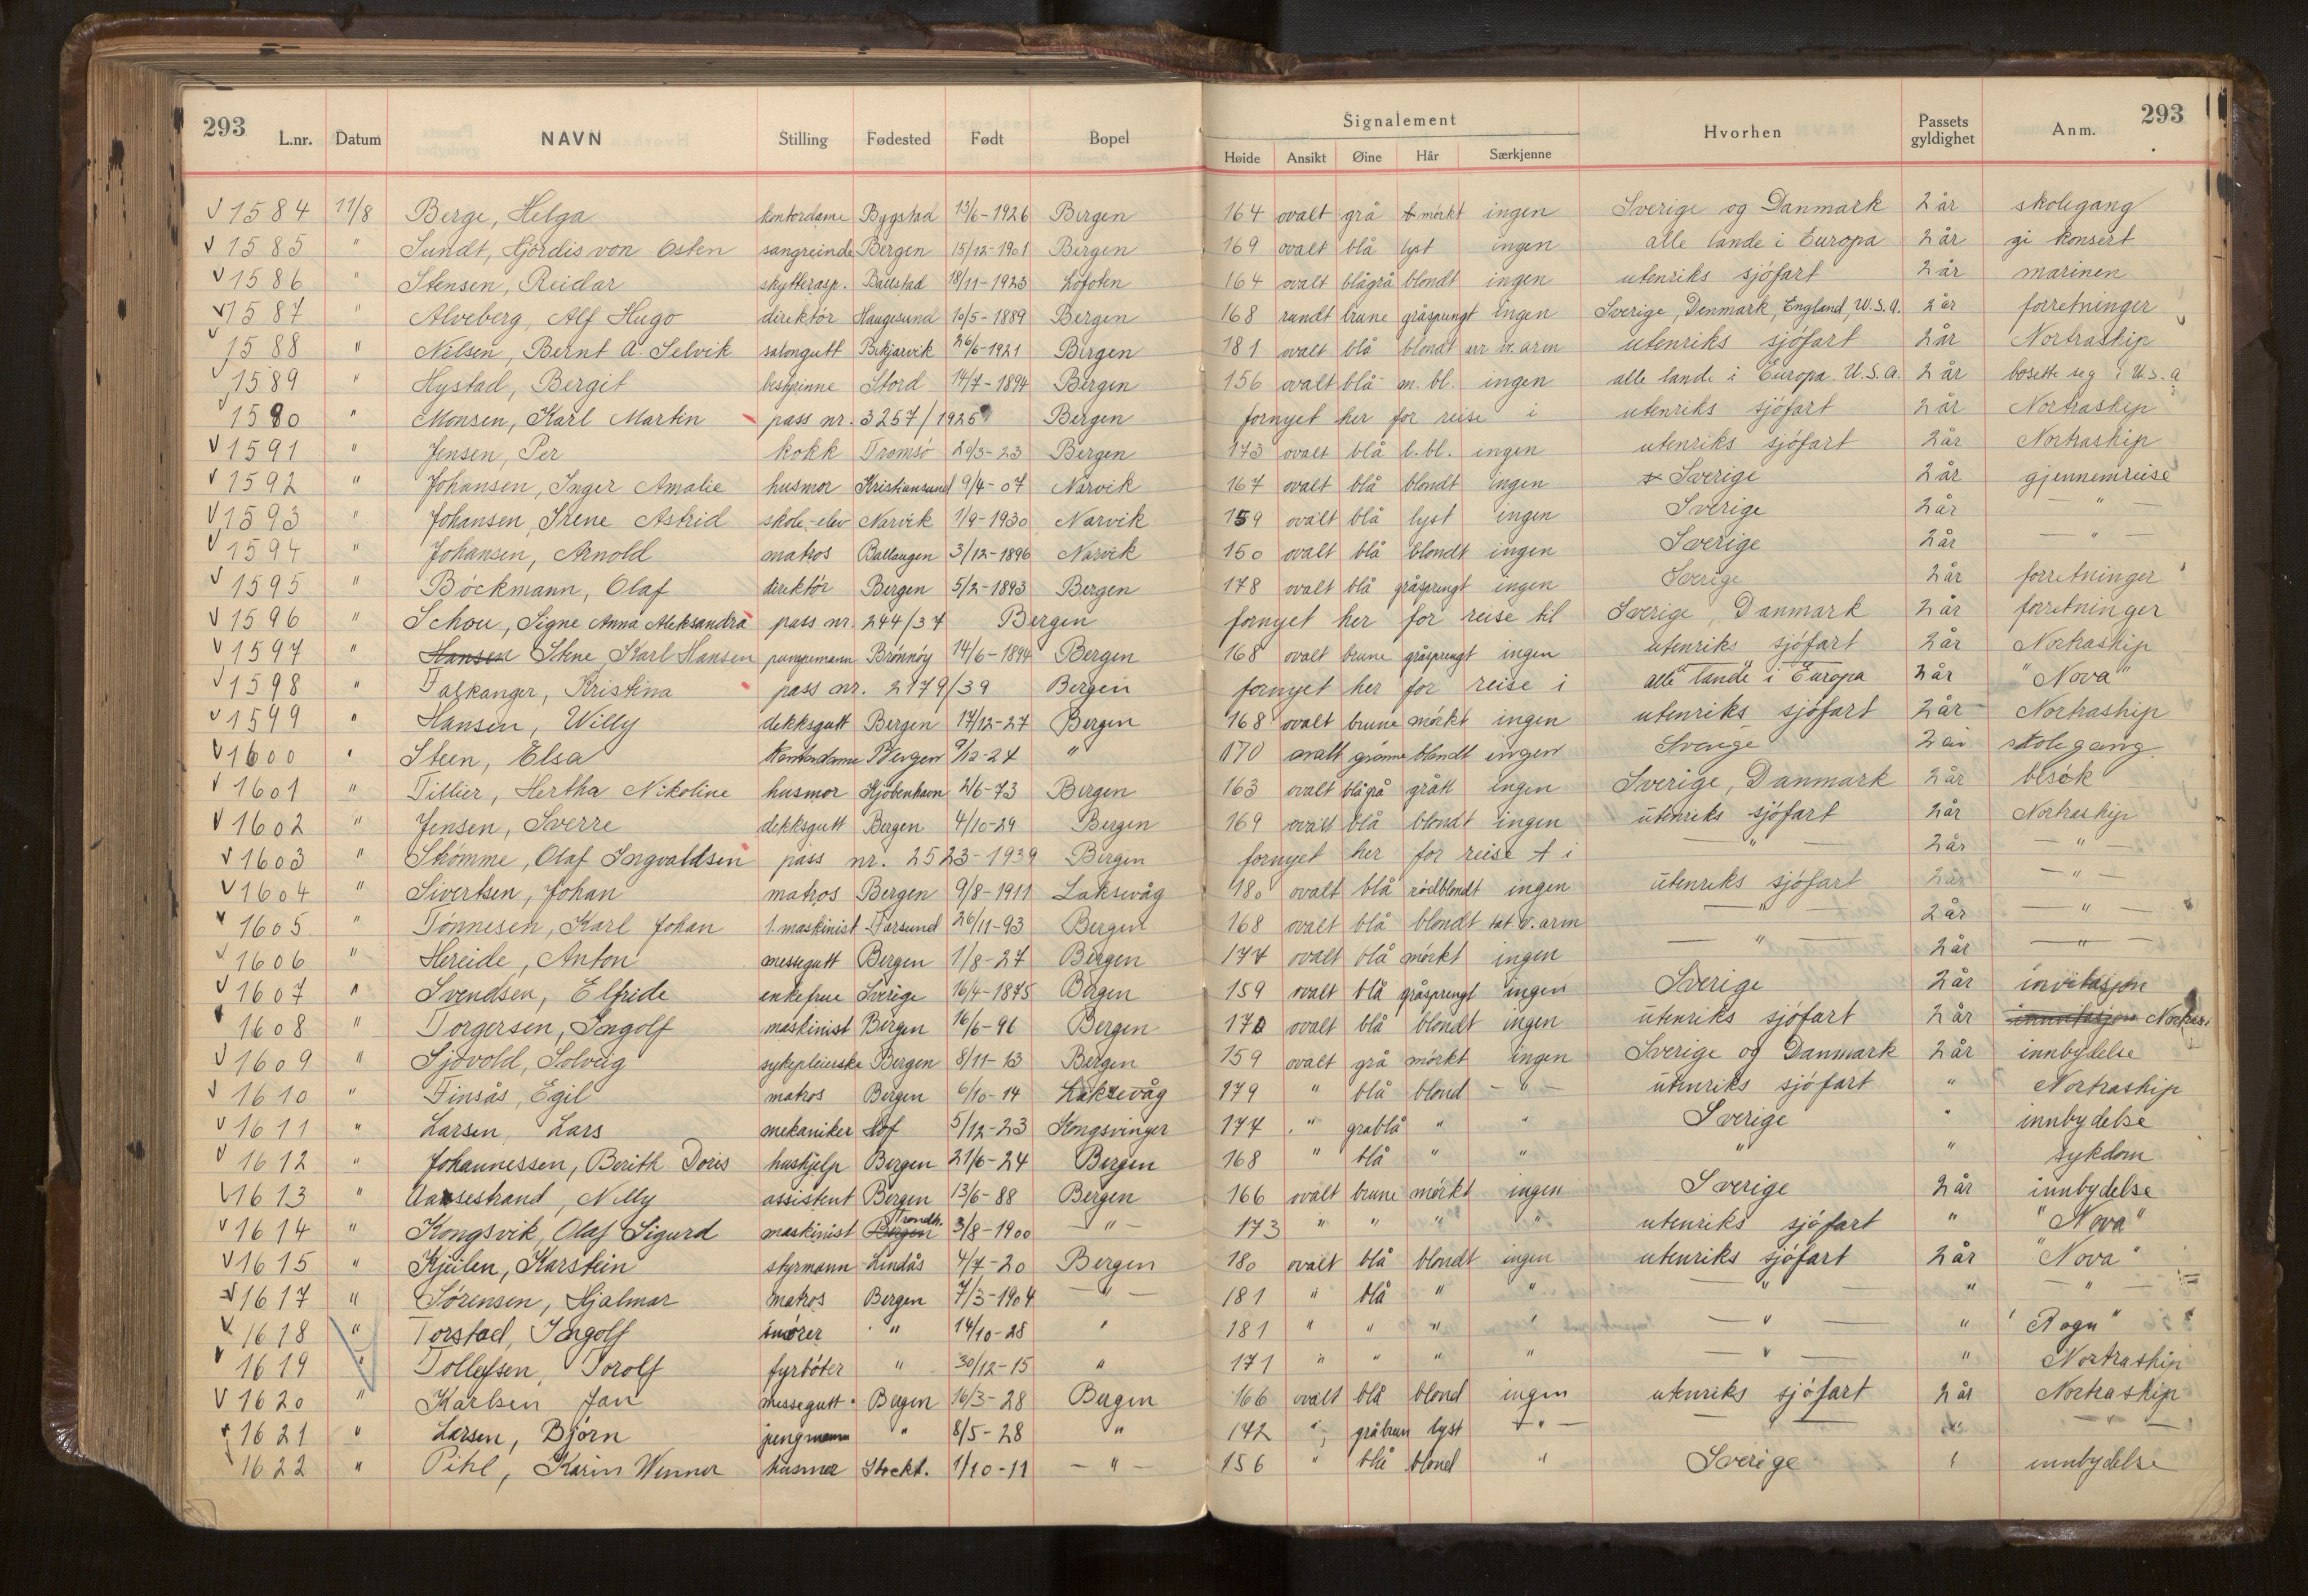 293 L.nr. Datum NAVN Stilling Fødested Født Bopel Signalement Hvorhen Passets gyldighet Anm. 293
Høide Ansikt Øine Hår Særkjenne
V 1584 11/8 Berge, Helga kontordame Bygstad 13/6-1926 Bergen 164 ovalt grå mørkt ingen Sverige og Danmark 2 år skolegang
V 1585 " Sundt, Hjørdis von Osten sangerinde Bergen 15/12-1901 Bergen 169 ovalt blå lyst ingen alle lande i Europa 2 år gi konsert
V 1586 " Stensen, Reidar skytterasp. Ballstad 18/11-1923 Lofoten 164 ovalt blågrå blondt ingen utenriks sjöfart 2 år marinen
V 1587 " Alveberg, Alf Hugo direktör Haugesund 10/5-1889 Bergen 168 rundt brune gråsprengt ingen Sverige, Denmark, England, U.S.A. 2 år forretninger
V 1588 " Nilsen, Bernt A. Selvik salongutt Bekjarvik 26/6-1921 Bergen 181 ovalt blå blondt arr v. arm utenriks sjöfart 2 år Nortraship
V 1589 " Hystad, Bergit bestyrinne Stord 14/7-1894 Bergen 156 ovalt blå m. bl. ingen alle lande i Europa. U.S.A. 2 år bosette seg i U.S.A
V 1590 " Monsen, Karl Martin pass nr. 3257/1925 Bergen fornyet her for reise i utenriks sjöfart 2 år Nortraship
V 1591 " Jensen, Per kokk Tromsö 29/3-23 Bergen 173 ovalt blå l.bl. ingen utenriks sjöfart 2 år Nortraship
V 1592 " Johansen, Inger Amalie husmor Kristiansund 9/4-07 Narvik 167 ovalt blå blondt ingen Sverige 2 år gjennemreise
V 1593 " Johansen, Irene Astrid skole-elev Narvik 1/9-1930 Narvik 159 ovalt blå lyst ingen Sverige 2 år — " —
V 1594 " Johansen, Arnold matros Ballangen 3/12-1896 Narvik 150 ovalt blå blondt ingen Sverige 2 år — " —
V 1595 " Böckmann, Olaf direktör Bergen 5/2-1893 Bergen 178 ovalt blå gråsprengt ingen Sverige 2 år forretninger
V 1596 " Schou, Signe Anna Aleksandra pass nr. 244/37 Bergen fornyet her for reise til Sverige, Danmark 2 år forretninger
V 1597 " Hansen Stene, Karl Hansen pumpemann Brönnöy 14/6-1894 Bergen 168 ovalt brune gråsprengt ingen utenriks sjöfart 2 år Nortraship
V 1598 " Falkanger, Kristina pass nr. 2179/39 Bergen fornyet her for reise i alle lande i Europa 2 år "Nova"
V 1599 " Hansen, Willy dekksgutt Bergen 17/12-27 Bergen 168 ovalt brune mörkt ingen utenriks sjöfart 2 år Nortraship
V 1600 " Steen, Elsa Kontordame Bergen 9/12-24 " 170 ovalt grønne blondt ingen Sverige 2 år skolegang
V 1601 " Tillier, Hertha Nikoline husmor Kjöbenhavn 2/6-73 Bergen 163 ovalt blågrå grått ingen Sverige, Danmark 2 år besök
V 1602 " Jensen, Sverre dekksgutt Bergen 4/10-29 Bergen 169 ovalt blå blondt ingen utenriks sjöfart 2 år Nortraship
V 1603 " Skömme, Olaf Ingvaldsen pass nr. 2523-1939 Bergen fornyet her for reise t i — " — 2 år — " —
V 1604 " Sivertsen, Johan matros Bergen 9/8-1911 Laksevåg 180 ovalt blå rödblondt ingen utenriks sjöfart 2 år — " —
V 1605 " Tönnesen, Karl Johan 1. maskinist Farsund 26/11-93 Bergen 168 ovalt blå blondt tat. v. arm — " — 2 år — " —
V 1606 " Hereide, Anton messegutt Bergen 1/8-27 Bergen 177 ovalt blå mörkt ingen — " — 2 år — " —
V 1607 " Svendsen, Elfride enkefrue Sverige 16/4-1875 Bergen 159 ovalt blå gråsprengt ingen Sverige 2 år invitasjon
1608 " Torgersen, Ingolf maskinist Bergen 16/6-96 Bergen 170 ovalt blå blondt ingen utenriks sjöfart 2 år innvitasjon Nortras.
V 1609 " Sjövold, Solveig sykepleierske Bergen 8/11-13 Bergen 159 ovalt grå mörkt ingen Sverige og Danmark 2 år innbydelse
V 1610 " Finsås, Egil matros Bergen 6/10-14 Laksevåg 179 " blå blond — " — utenriks sjöfart " Nortraship
V 1611 " Larsen, Lars mekaniker Hof 5/12-23 Kongsvinger 177 " gråblå " " Sverige " innbydelse
V 1612 " Johannessen, Berith Doris hushjelp Bergen 21/6-24 Bergen 168 " blå " " " " sykdom
V 1613 " Aarsestrand, Nelly assistent Bergen 13/6-88 Bergen 166 ovalt brune mörkt ingen Sverige 2 år innbydelse
V 1614 " Kongsvik, Olaf Sigurd maskinist Bergen Trondh. 3/8-1900 — " — 173 " " " " utenriks sjöfart " "Nova"
V 1615 " Kjeilen, Karstein styrmann Lindås 4/7-20 Bergen 180 ovalt blå blondt ingen utenriks sjöfart 2 år "Nova"
V 1617 " Sørensen, Hjalmar matros Bergen 7/3-1904 — " — 181 " blå " " — " — " — " —
V 1618 " Torstad, Ingolf smører " 14/10-28 " 181 " " " " — " — " "Rogn"
V 1619 " Tollefsen, Torolf fyrböter " 30/12-15 " 171 " " " " — " — " Nortraship
V 1620 " Karlsen Jan messegutt Bergen 16/3-28 Bergen 166 ovalt blå blond ingen utenriks sjöfart 2 år Nortraship
1621 " Larsen, Björn jungmann " 8/5-28 " 172 " gråbrun lyst — " — — " — " — " —
1622 " Pihl, Karin Wenner husmor Stockh. 1/10-11 — " — 156 " blå blond " Sverige " innbydelse